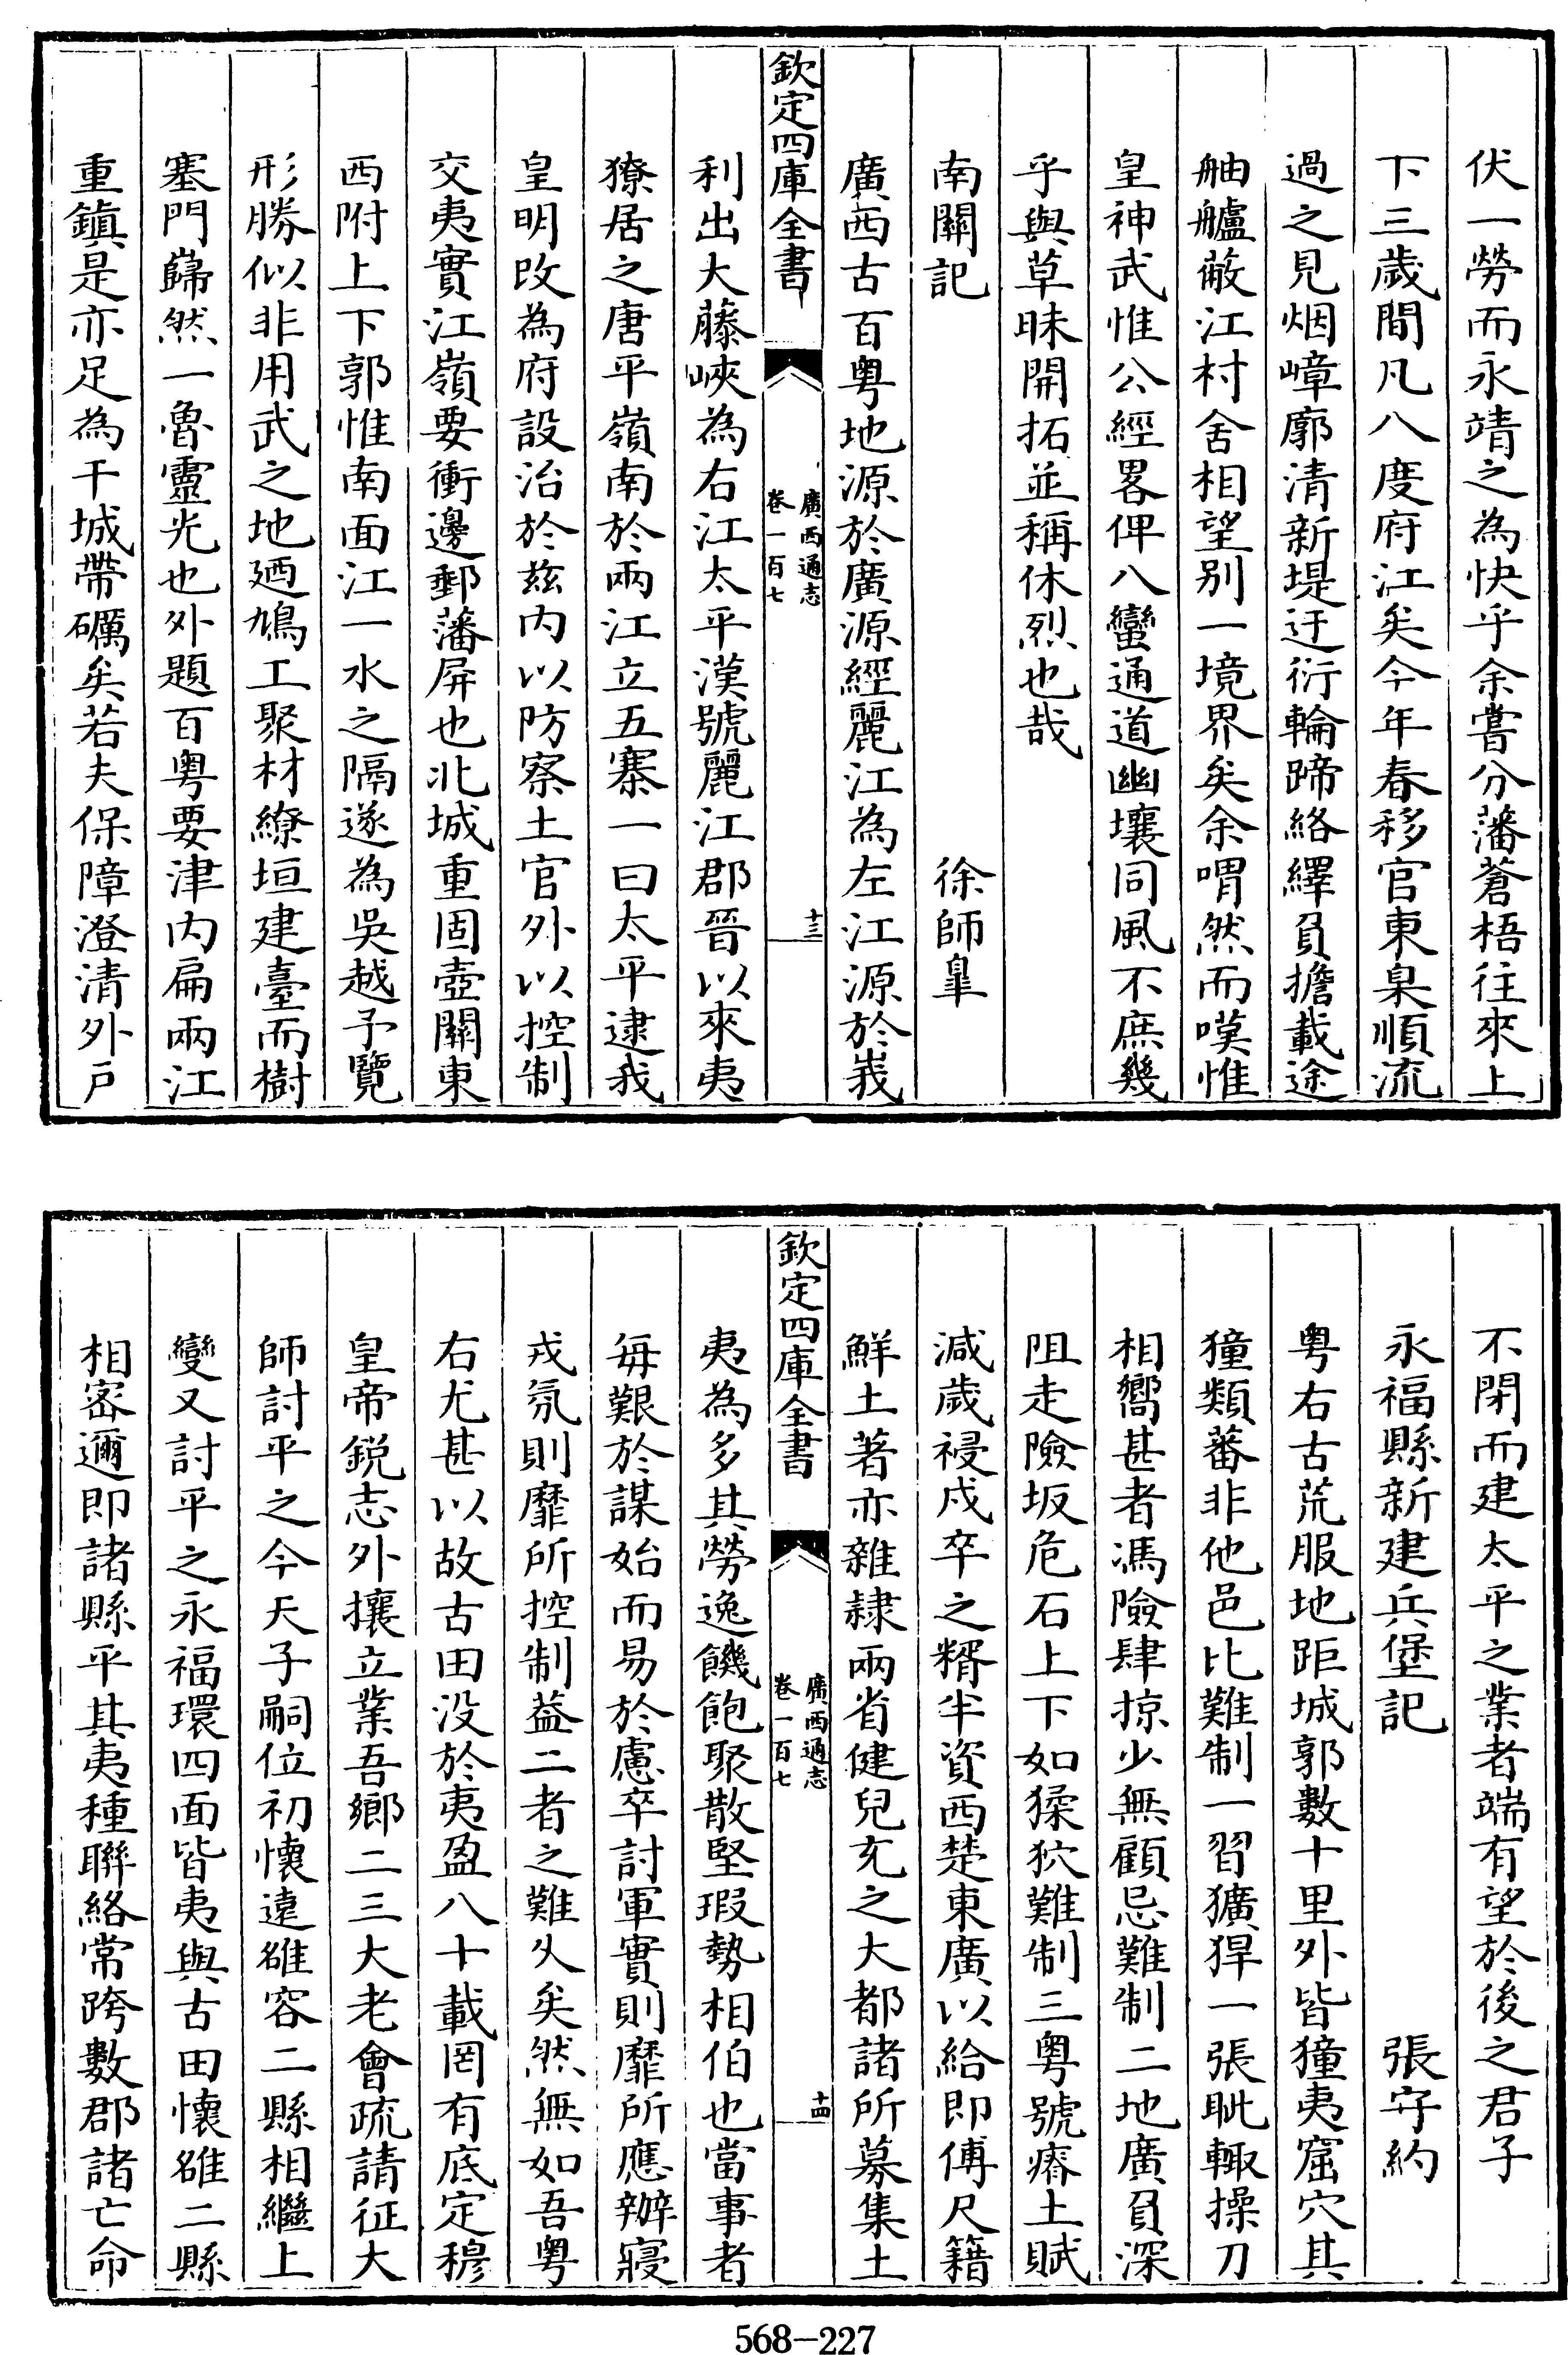 伏一勞而永靖之為快乎余嘗分藩蒼梧往來上
下三歲間凡八度府江矣今年春移官東臬順流
過之見烟嶂廓清新堤迂衍輪蹄絡繹負擔載途
舳艫蔽江村舍相望别一境界矣余喟然而嘆惟
皇神武惟公經畧俾八蠻通道幽壤同風不庶幾
乎與草昧開拓並稱休烈也哉
南關記 徐師臯
廣西古百粤地源於廣源經麗江為左江源於峩
欽定四庫全書 廣西通志 卷一百七 十三
利出大藤峽為右江太平漢號麗江郡晉以來夷
獠居之唐平嶺南於兩江立五寨一曰太平逮我
皇明改為府設治於兹内以防察土官外以控制
交夷實江嶺要衝邊郵藩屏也北城重固壺關東
西附上下郭惟南面江一水之隔遂為吳越予覽
形勝似非用武之地廼鳩工聚材繚垣建臺而樹
塞門巋然一魯靈光也外題百粤要津内扁兩江
重鎮是亦足為干城帶礪矣若夫保障澄清外戶
不閉而建太平之業者端有望於後之君子
永福縣新建兵堡記 張守約
粤右古荒服地距城郭數十里外皆獞夷窟穴其
獞類蕃非他邑比難制一習獷猂一張眦輙操刀
相嚮甚者馮險肆掠少無顧忌難制二地廣負深
阻走險坂危石上下如猱狖難制三粤號瘠土賦
減歲祲戍卒之糈半資西楚東廣以給即傅尺籍
鮮土著亦雜隸兩省健兒充之大都諸所募集土
欽定四庫全書 廣西通志 卷一百七 十四
夷為多其勞逸饑飽聚散堅瑕勢相伯也當事者
毎艱於謀始而易於慮卒討軍實則靡所應辦寢
戎氛則靡所控制益二者之難久矣然無如吾粤
右尤甚以故古田没於夷盈八十載罔有底定穆
皇帝鋭志外攘立業吾鄉二三大老會疏請征大
師討平之今天子嗣位初懷遠雒容二縣相繼上
變又討平之永福環四面皆夷與古田懷雒二縣
相宻邇即諸縣平其夷種聯絡常跨數郡諸亡命
568-227